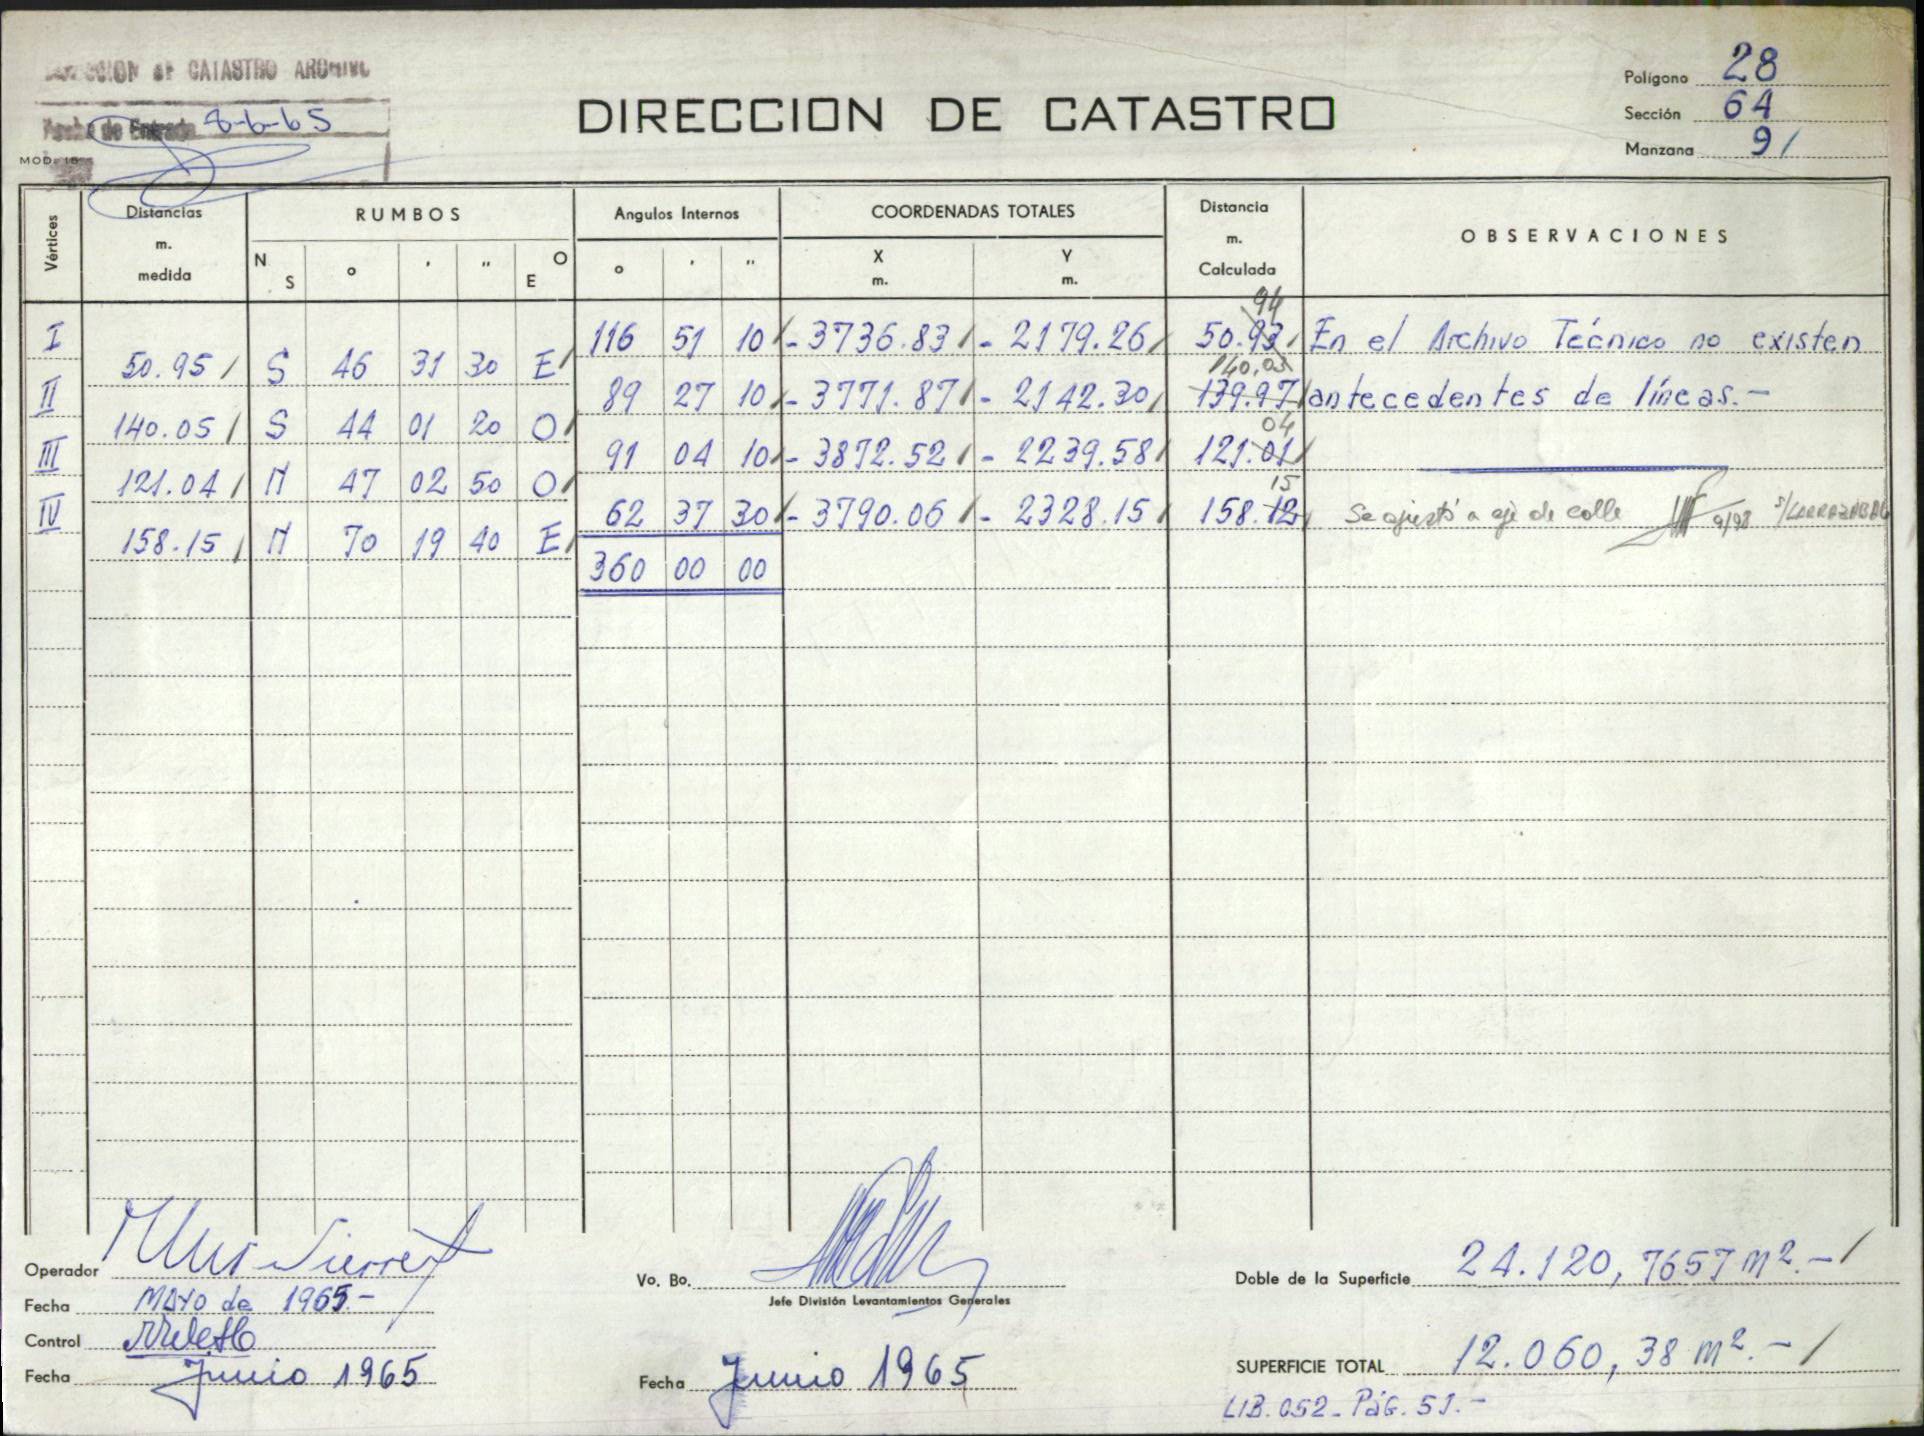 DIRECCION DE CATASTRO ARCHIVO
Fecha de Entrada 8-6-65
MOD. 15
DIRECCION DE CATASTRO
Polígono 28
Sección 64
Manzana 91
Vértices
Distancias m. medida
RUMBOS
N S o ' '' O E
Angulos Internos
o ' ''
COORDENADAS TOTALES
X m. Y m.
Distancia m. Calculada
OBSERVACIONES
I 116 51 10 - 3736.83 - 2179.26 50.93 94 En el Archivo Técnico no existen
50.95 S 46 31 30 E
II 89 27 10 - 3771.87 - 2142.30 139.97 140,03 antecedentes de líneas.-
140.05 S 44 01 20 O
III 91 04 10 - 3872.52 - 2239.58 121.01 04
121.04 N 47 02 50 O
IV 62 37 30 - 3790.06 - 2328.15 158.12 15 Se ajustó a eje de calle 9/98 S/LARRAZABAL
158.15 N 70 19 40 E
360 00 00
Operador
Fecha MAYO de 1965.-
Control
Fecha Junio 1965
Vo. Bo.
Jefe División Levantamientos Generales
Fecha Junio 1965
Doble de la Superficie 24.120,7657 m2.-
SUPERFICIE TOTAL 12.060,38 m2.-
LIB. 052 - PáG. 51.-